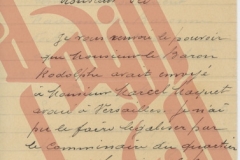 Monsieur Sée
Je vous renvoie le pouvoir
que Monsieur le Baron
Rodolphe avait envoyé
à Monsieur Marcel Maquet
avoué à Versailles. Je n'ai
pu le faire légaliser par
le Commissaire du quartier